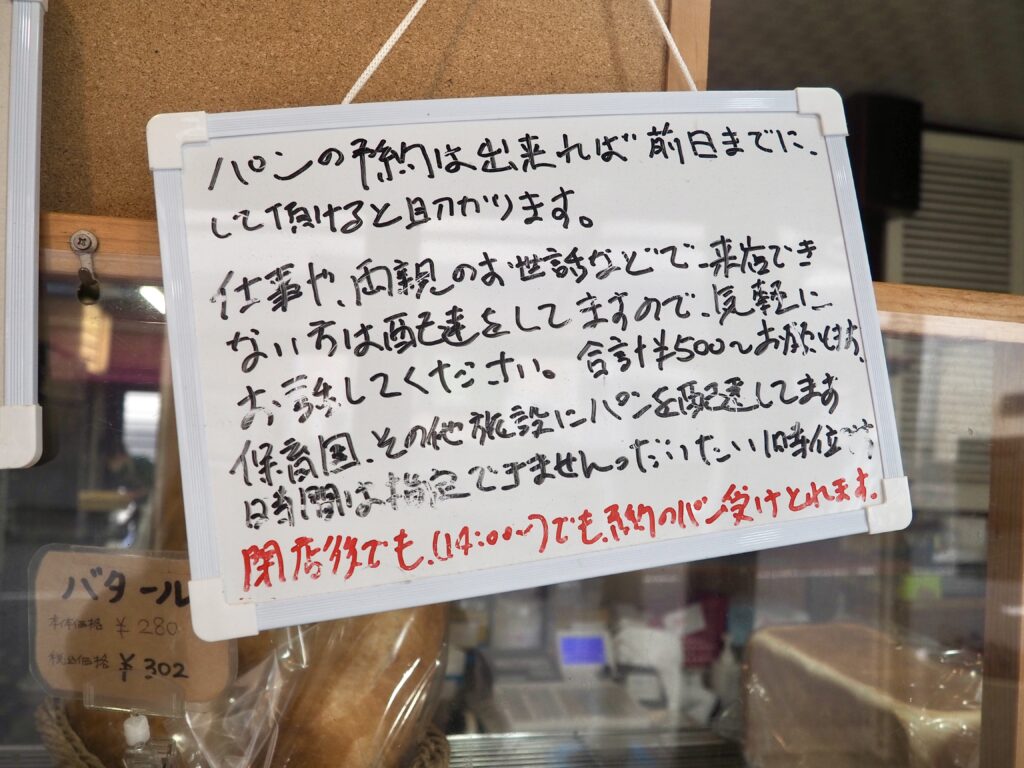 パンの予約は出来れば前日までに、
して頂けると助かります。
仕事や、両親のお世話などで、来店でき
ない方は配達をしてますので、気軽に
お話してください。合計¥500〜お願いします。
保育園、その他施設にパンを配達してます
時間は指定できませんっだいたい1時位です
閉店後でも、(14:00〜)でも予約のパン受けとれます。
バタール
本体価格 ¥280
税込価格 ¥302